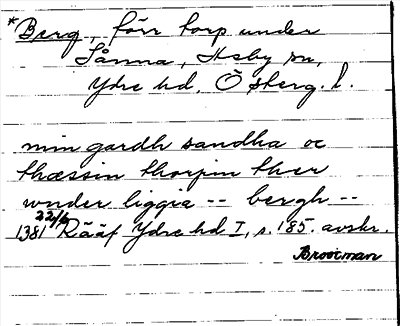 *Berg, förr torp under
Sånna, Asby sn,
Ydre hd. Östberg. l.
min gardh sandha oc
thæssin thorpin ther
wnder liggia -- bergh --
1381 22/6 Rääf Ydre hd I, s. 185. avskr.
Broocman